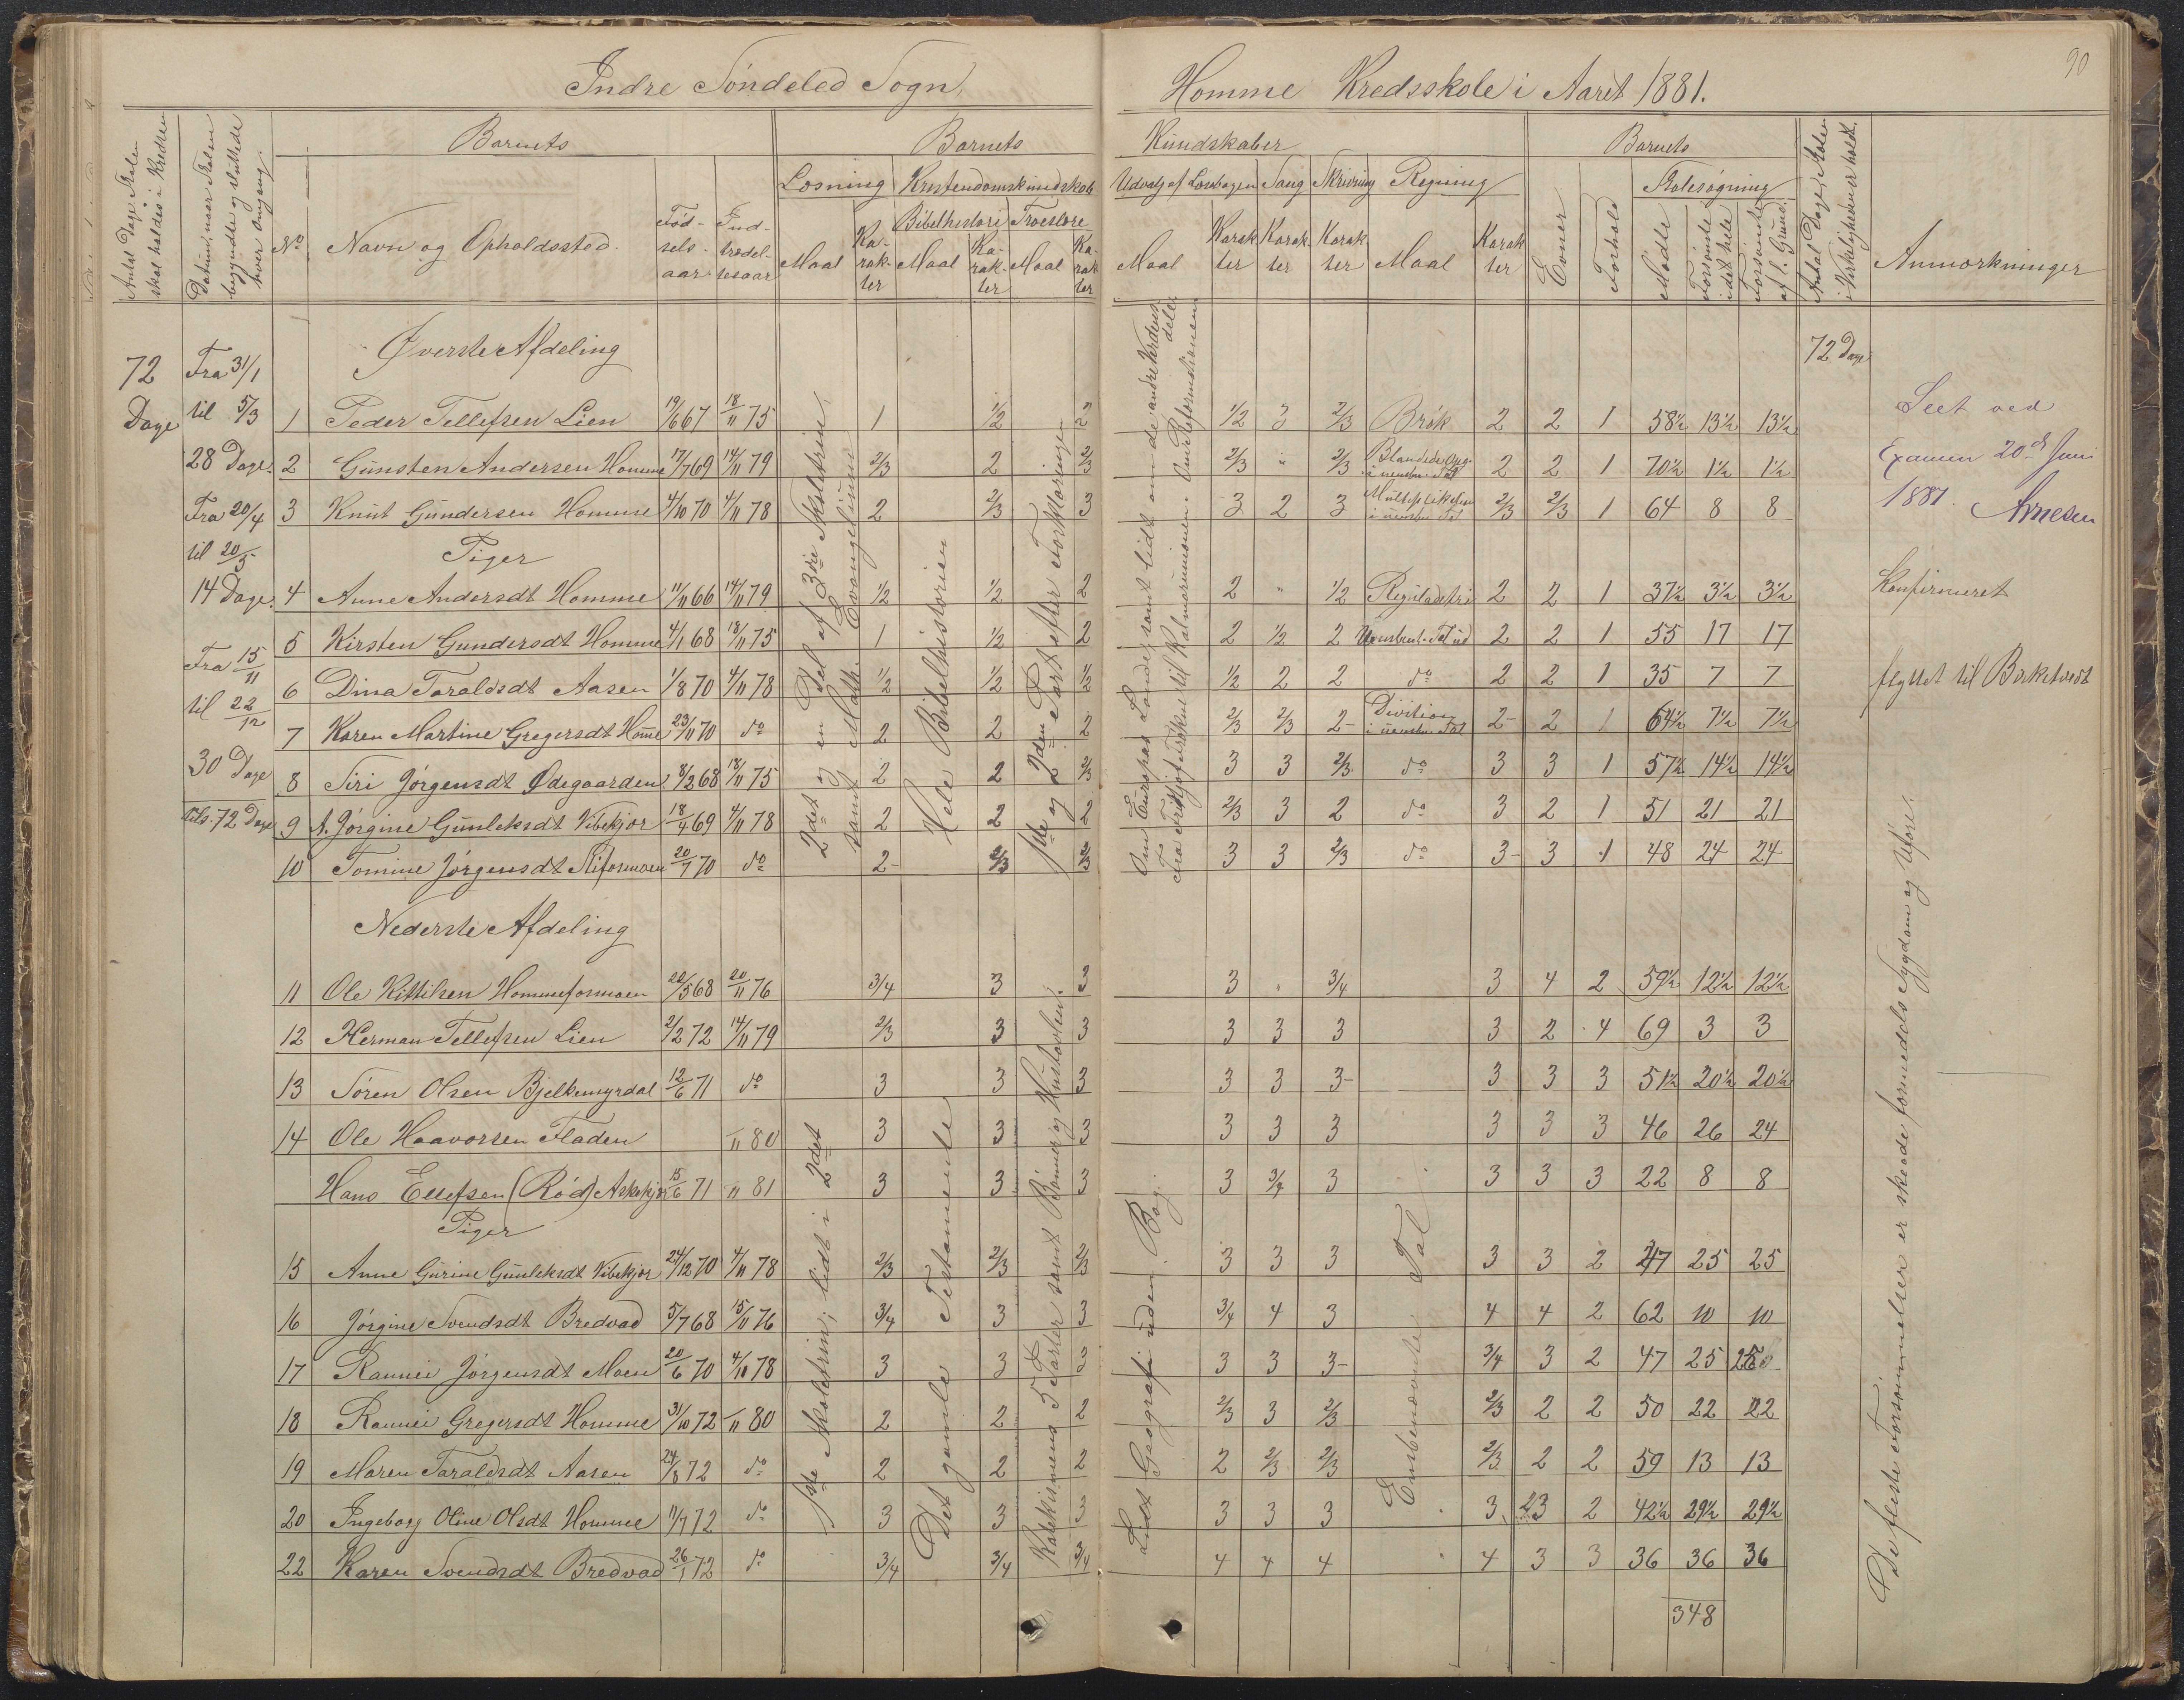 90
Indre Söndeled Sogn,
Homme Kredsskole i Aaret 1881.
Antal Dage Skolen skal holdes i Kredsen
Datum, naar Skolen begyndte og sluttede hver Omgang.
Barnets
Barnets
Kundskaber
Barnets
Antal Dage Skolen i Virkeligheden er holdt.
Nº
Navn og Opholdssted.
Fødselsaar
Indtrædelsesaar
Læsning
Kristendomskundskab
Udvalg af Læsebogen
Sang
Skrivning
Regning
Evner
Forhold
Skolesøgning
Maal
Karakter
Bibelhistorie
Troeslære
Maal
Karakter
Maal
Karakter
Maal
Karakter
Karakter
Karakter
Maal
Karakter
Mødte
Forsømte i det hele
Forsømte af l. Grund.
Anmærkninger
Øverste Afdeling
72 Dage
72 Dage
Fra 31/1
til 5/3
28 Dage.
Fra 20/4
til 20/5
14 Dage.
Fra 15/11
til 22/12
30 Dage
tils. 72 Dage
1 Peder Tellefsen Lien 19/6 67 18/11 75 1 1/2 2 1/2 3 2/3 Brök 2 2 1 58½ 13½ 13½
2 Gunsten Andersen Homme 17/7 69 14/11 79 2/3 2 2/3 2/3 " 2/3 Blandede Opg. i uensbn. Tal 2 2 1 70½ 1½ 1½
3 Knut Gundersen Homme 4/10 70 4/11 78 2 2/3 3 3 2 3 Multiplikation i uensbn. Tal 2/3 2/3 1 64 8 8
Piger
4 Anne Andersdt Homme 11/11 66 14/11 79 1/2 1/2 2 2 " 1/2 Reguladetri 2 2 1 37½ 3½ 3½ Konfirmeret
5 Kirsten Gundersdt Homme 4/1 68 18/11 75 1 1/2 2 2 1/2 2 Uensbent. Tal ud 2 2 1 55 17 17
6 Dina Taraldsdt Aasen 1/8 70 4/11 78 1/2 1/2 1/2 1/2 2 2 do 2 2 1 35 7 7 flyttet til Birketvedt
7 Karen Martine Gregersdt Homme 23/11 70 do 2 2 2 2/3 2/3 2- Division i uensbn. Tal 2- 2 1 64½ 7½ 7½
8 Siri Jörgensdt Ödegaarden 8/2 68 18/11 75 2 2 2/3 3 3 2/3 do 3 3 1 57½ 14½ 14½
9 A. Jörgine Gunleksdt Vibekjær 18/4 69 4/11 78 2 2 2 2/3 3 2 do 3 2 1 51 21 21
10 Tomine Jörgensdt 20/7 70 do 2- 2/3 2/3 3 3 2/3 do 3- 3 1 48 24 24
2det og en Del af 3die Skoletrin, samt Math. Evangelium
Hele Bibelhistorien
1ste og 2den Part efter Forklaringen
Om Europas Lande, samt lidt om de andre Verdensdele.
Fra Fritjof Frökne til Kalmarunionen. Om Reformationen
Seet ved
Examen 20de Juni
1881. Arnesen
Nederste Afdeling
11 Ole Kittilsen Hommeformoen 22/5 68 20/11 76 3/4 3 3 3 " 3/4 3 4 2 59½ 12½ 12½
12 Herman Tellefsen Lien 2/2 72 14/11 79 2/3 3 3 3 3 3 3 2 4 69 3 3
13 Sören Olsen Bjelkemyrdal 12/6 71 do 3 3 3 3 3 3- 3 3 3 51½ 20½ 20½
14 Ole Haavorsen Fladen 11 80 3 3 3 3 3 3 3 3 3 46 26 24
Hans Ellefsen (Röd) Askekjær 15/6 71 11 81 3 3 3 3 3/4 3 3 3 3 22 8 8
Piger
15 Anne Gurine Gunleksdt Vibekjær 24/12 70 4/11 78 2/3 2/3 2/3 3 3 3 3 3 2 47 25 25
16 Jörgine Svendsdt Bredvad 5/7 68 15/11 76 3/4 3 3 3/4 4 3 4 4 2 62 10 10
17 Rannei Jörgensdt Moen 20/6 70 4/10 78 3 3 3 3 3 3- 3/4 3 2 47 25 25
18 Rannei Gregersdt Homme 31/10 72 11 80 2 2 2 2/3 3 2/3 2/3 2 2 50 22 22
19 Maren Taraldsdt Aasen 24/8 72 do 2 2 2 2 2/3 2/3 2/3 2 2 59 13 13
20 Ingeborg Oline Olsdt Homme 11/7 72 do 3 3 3 3 3 3 3 23 2 42½ 29½ 29½
22 Karen Svendsdt Bredvad 26/1 72 do 3/4 3/4 3/4 4 4 4 4 3 3 36 36 36
348
1ste Skoletrin; lidt i 2det
Det gamle Testamente
Katekismens 5 Parter samt Bönner og Hustavlen.
Lidt Geografi uden Bog.
Ensbenævnte Tal
De fleste Forsömmelser er skeede formedelst Sygdom og Uföre.